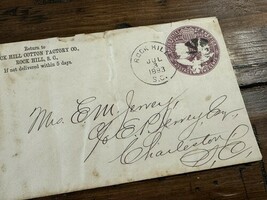 Return to
ROCK HILL COTTON FACTORY CO.
ROCK HILL, S. C.
If not delivered within 5 days.
ROCK HILL
JUL
1893
S.C.
Mrs. E M
c/o E.
Charleston
S, C,